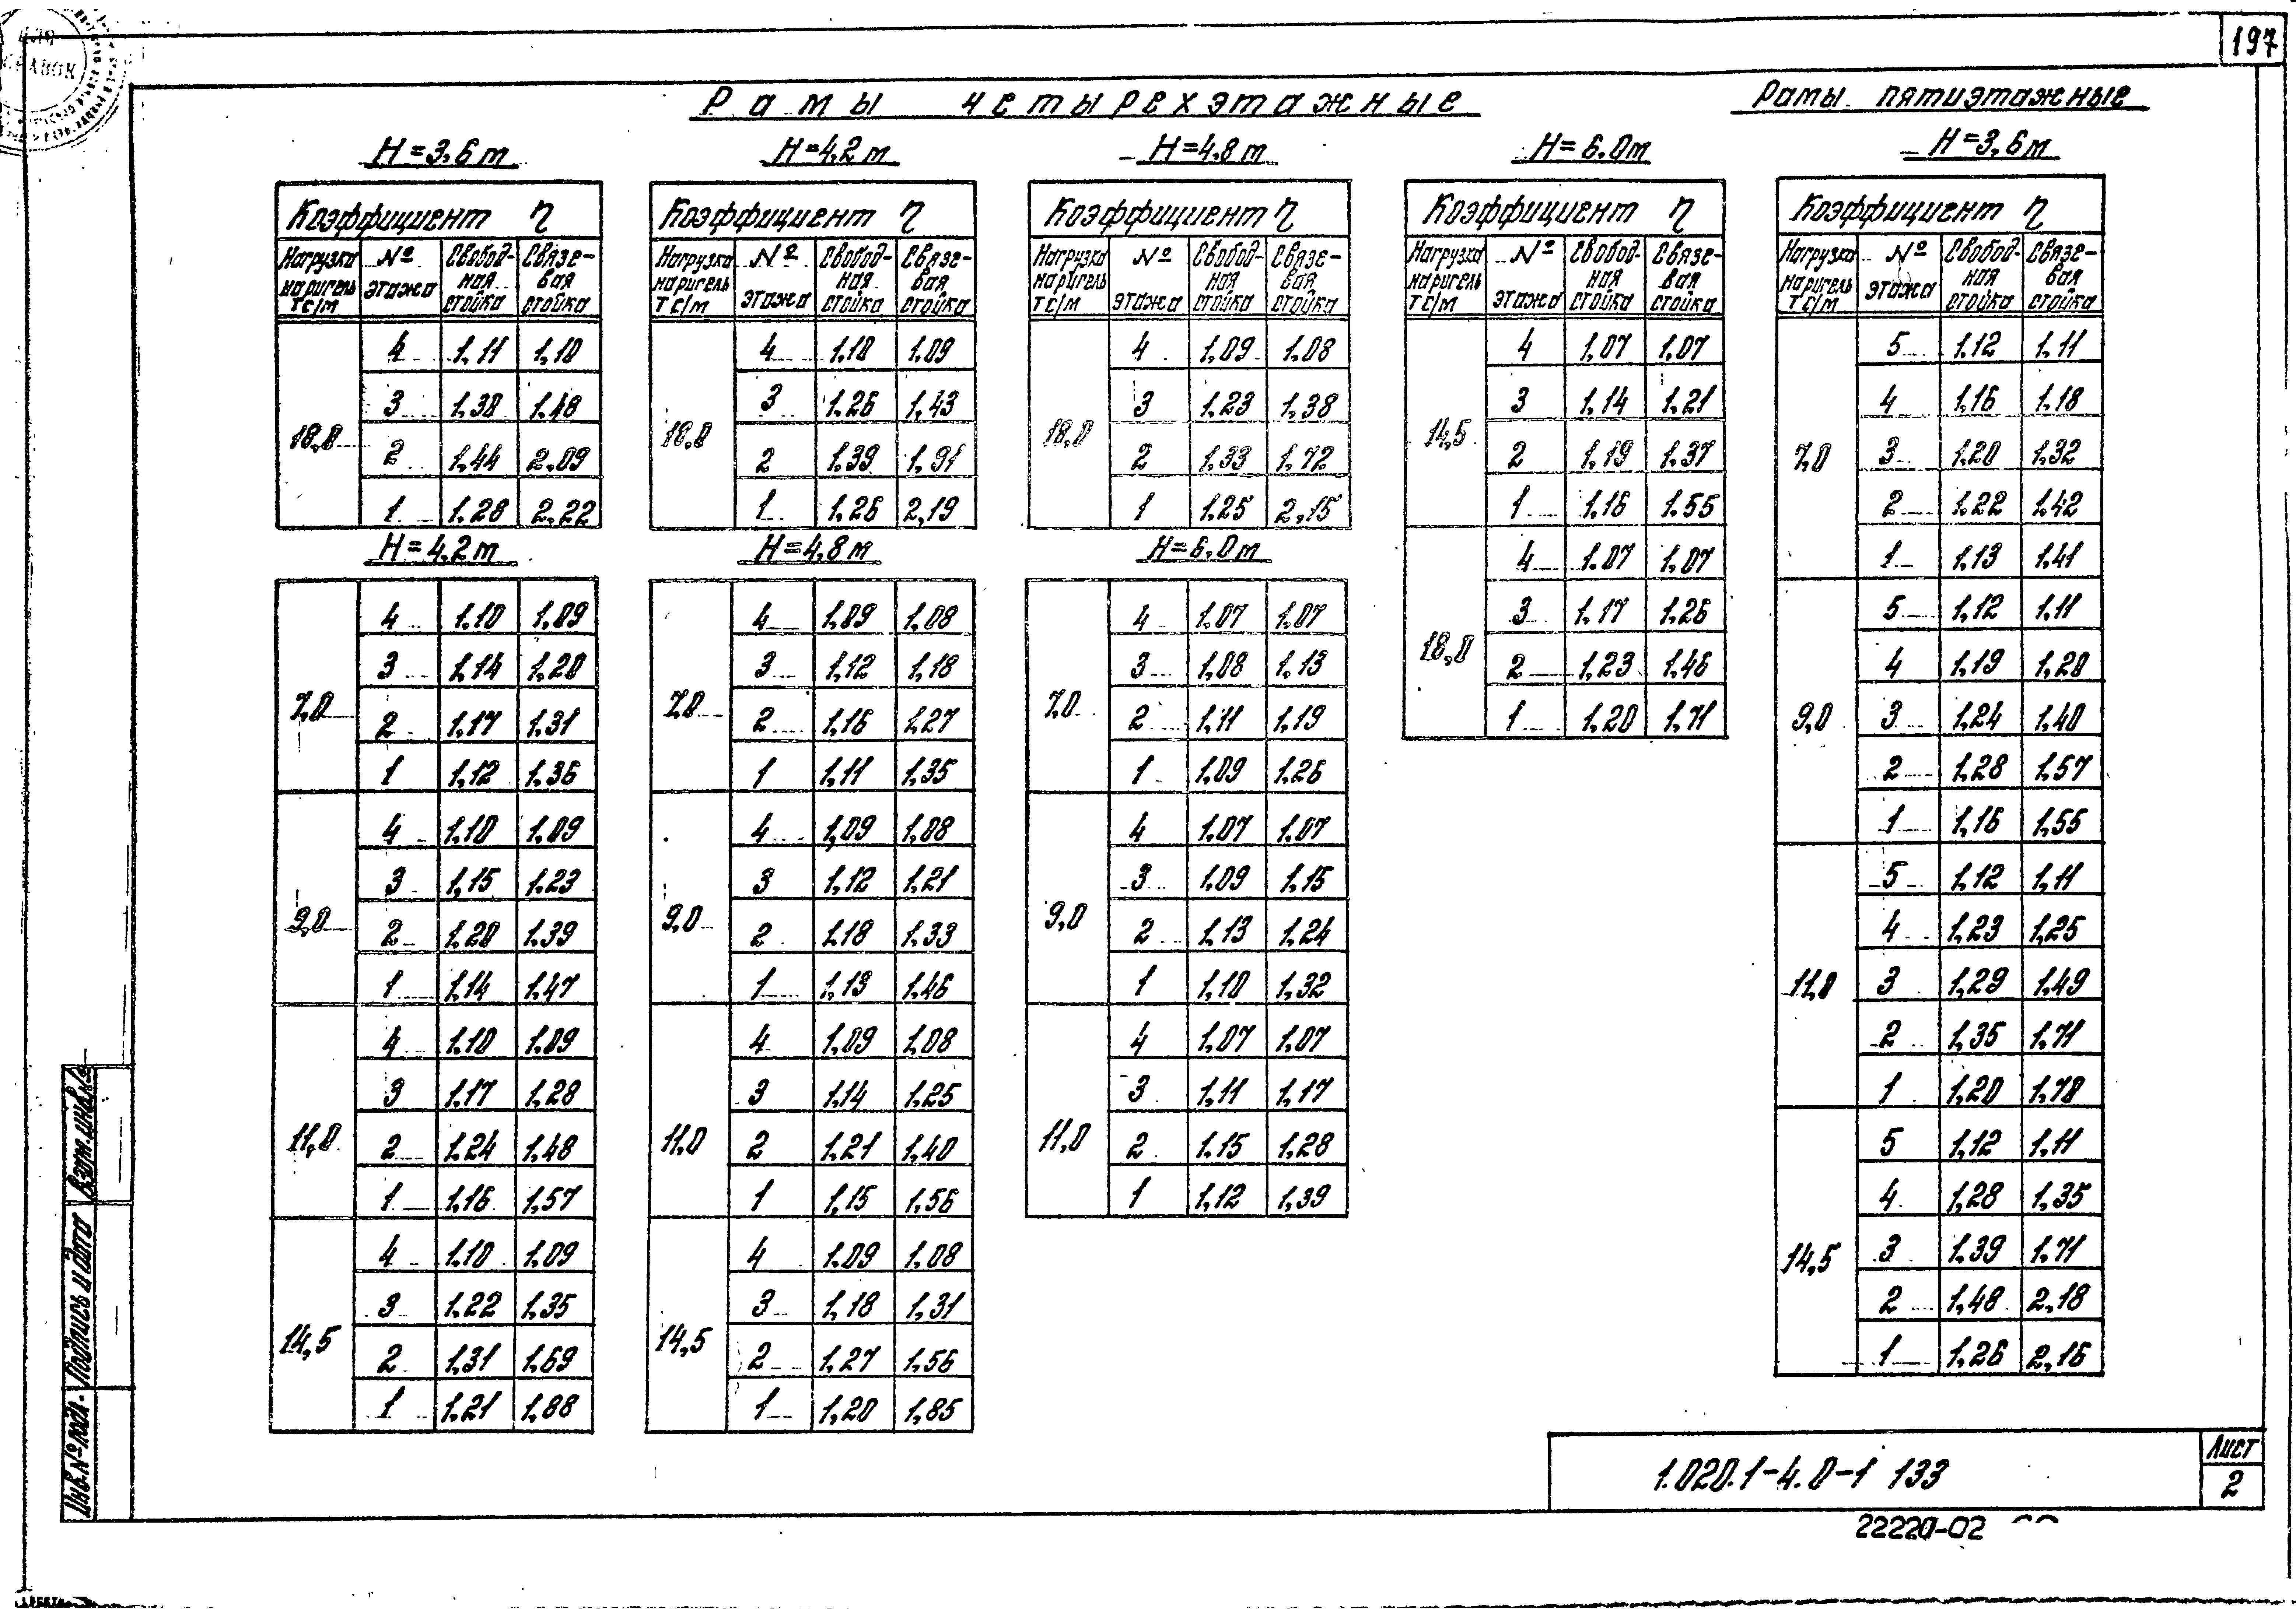 197
Рамы четырехэтажные
Рамы пятиэтажные
H=3,6м
Коэффициент η
Нагрузка на ригель тс/м | № этажа | Свободная стойка | Связевая стойка
18,0
4 1,11 1,10
3 1,38 1,48
2 1,44 2,09
1 1,28 2,22
H=4,2м
7,0
4 1,10 1,09
3 1,14 1,20
2 1,17 1,31
1 1,12 1,36
9,0
4 1,10 1,09
3 1,15 1,23
2 1,20 1,39
1 1,14 1,47
11,0
4 1,10 1,09
3 1,17 1,28
2 1,24 1,48
1 1,16 1,57
14,5
4 1,10 1,09
3 1,22 1,35
2 1,31 1,69
1 1,21 1,88
H=4,2м
Коэффициент η
Нагрузка на ригель тс/м | № этажа | Свободная стойка | Связевая стойка
18,0
4 1,10 1,09
3 1,26 1,43
2 1,39 1,91
1 1,26 2,19
H=4,8м
7,0
4 1,09 1,08
3 1,12 1,18
2 1,16 1,27
1 1,11 1,35
9,0
4 1,09 1,08
3 1,12 1,21
2 1,18 1,33
1 1,13 1,46
11,0
4 1,09 1,08
3 1,14 1,25
2 1,21 1,40
1 1,15 1,56
14,5
4 1,09 1,08
3 1,18 1,31
2 1,27 1,56
1 1,20 1,85
H=4,8м
Коэффициент η
Нагрузка на ригель тс/м | № этажа | Свободная стойка | Связевая стойка
18,0
4 1,09 1,08
3 1,23 1,38
2 1,33 1,72
1 1,25 2,15
H=6,0м
7,0
4 1,07 1,07
3 1,08 1,13
2 1,11 1,19
1 1,09 1,26
9,0
4 1,07 1,07
3 1,09 1,15
2 1,13 1,24
1 1,10 1,32
11,0
4 1,07 1,07
3 1,11 1,17
2 1,15 1,28
1 1,12 1,39
H=6,0м
Коэффициент η
Нагрузка на ригель тс/м | № этажа | Свободная стойка | Связевая стойка
14,5
4 1,07 1,07
3 1,14 1,21
2 1,19 1,37
1 1,16 1,55
18,0
4 1,07 1,07
3 1,17 1,26
2 1,23 1,46
1 1,20 1,71
H=3,6м
Коэффициент η
Нагрузка на ригель тс/м | № этажа | Свободная стойка | Связевая стойка
7,0
5 1,12 1,11
4 1,16 1,18
3 1,20 1,32
2 1,22 1,42
1 1,13 1,41
9,0
5 1,12 1,11
4 1,19 1,20
3 1,24 1,40
2 1,28 1,57
1 1,16 1,55
11,0
5 1,12 1,11
4 1,23 1,25
3 1,29 1,49
2 1,35 1,71
1 1,20 1,78
14,5
5 1,12 1,11
4 1,28 1,35
3 1,39 1,71
2 1,48 2,18
1 1,26 2,16
Инв.№ подл. Подпись и дата Взам.инв.№
1.020.1-4.0-1 133
Лист
2
22220-02